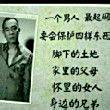 一个男人 最起码
要会保护四样东西
脚下的土地
家里的父母
怀里的女人
身边的兄弟